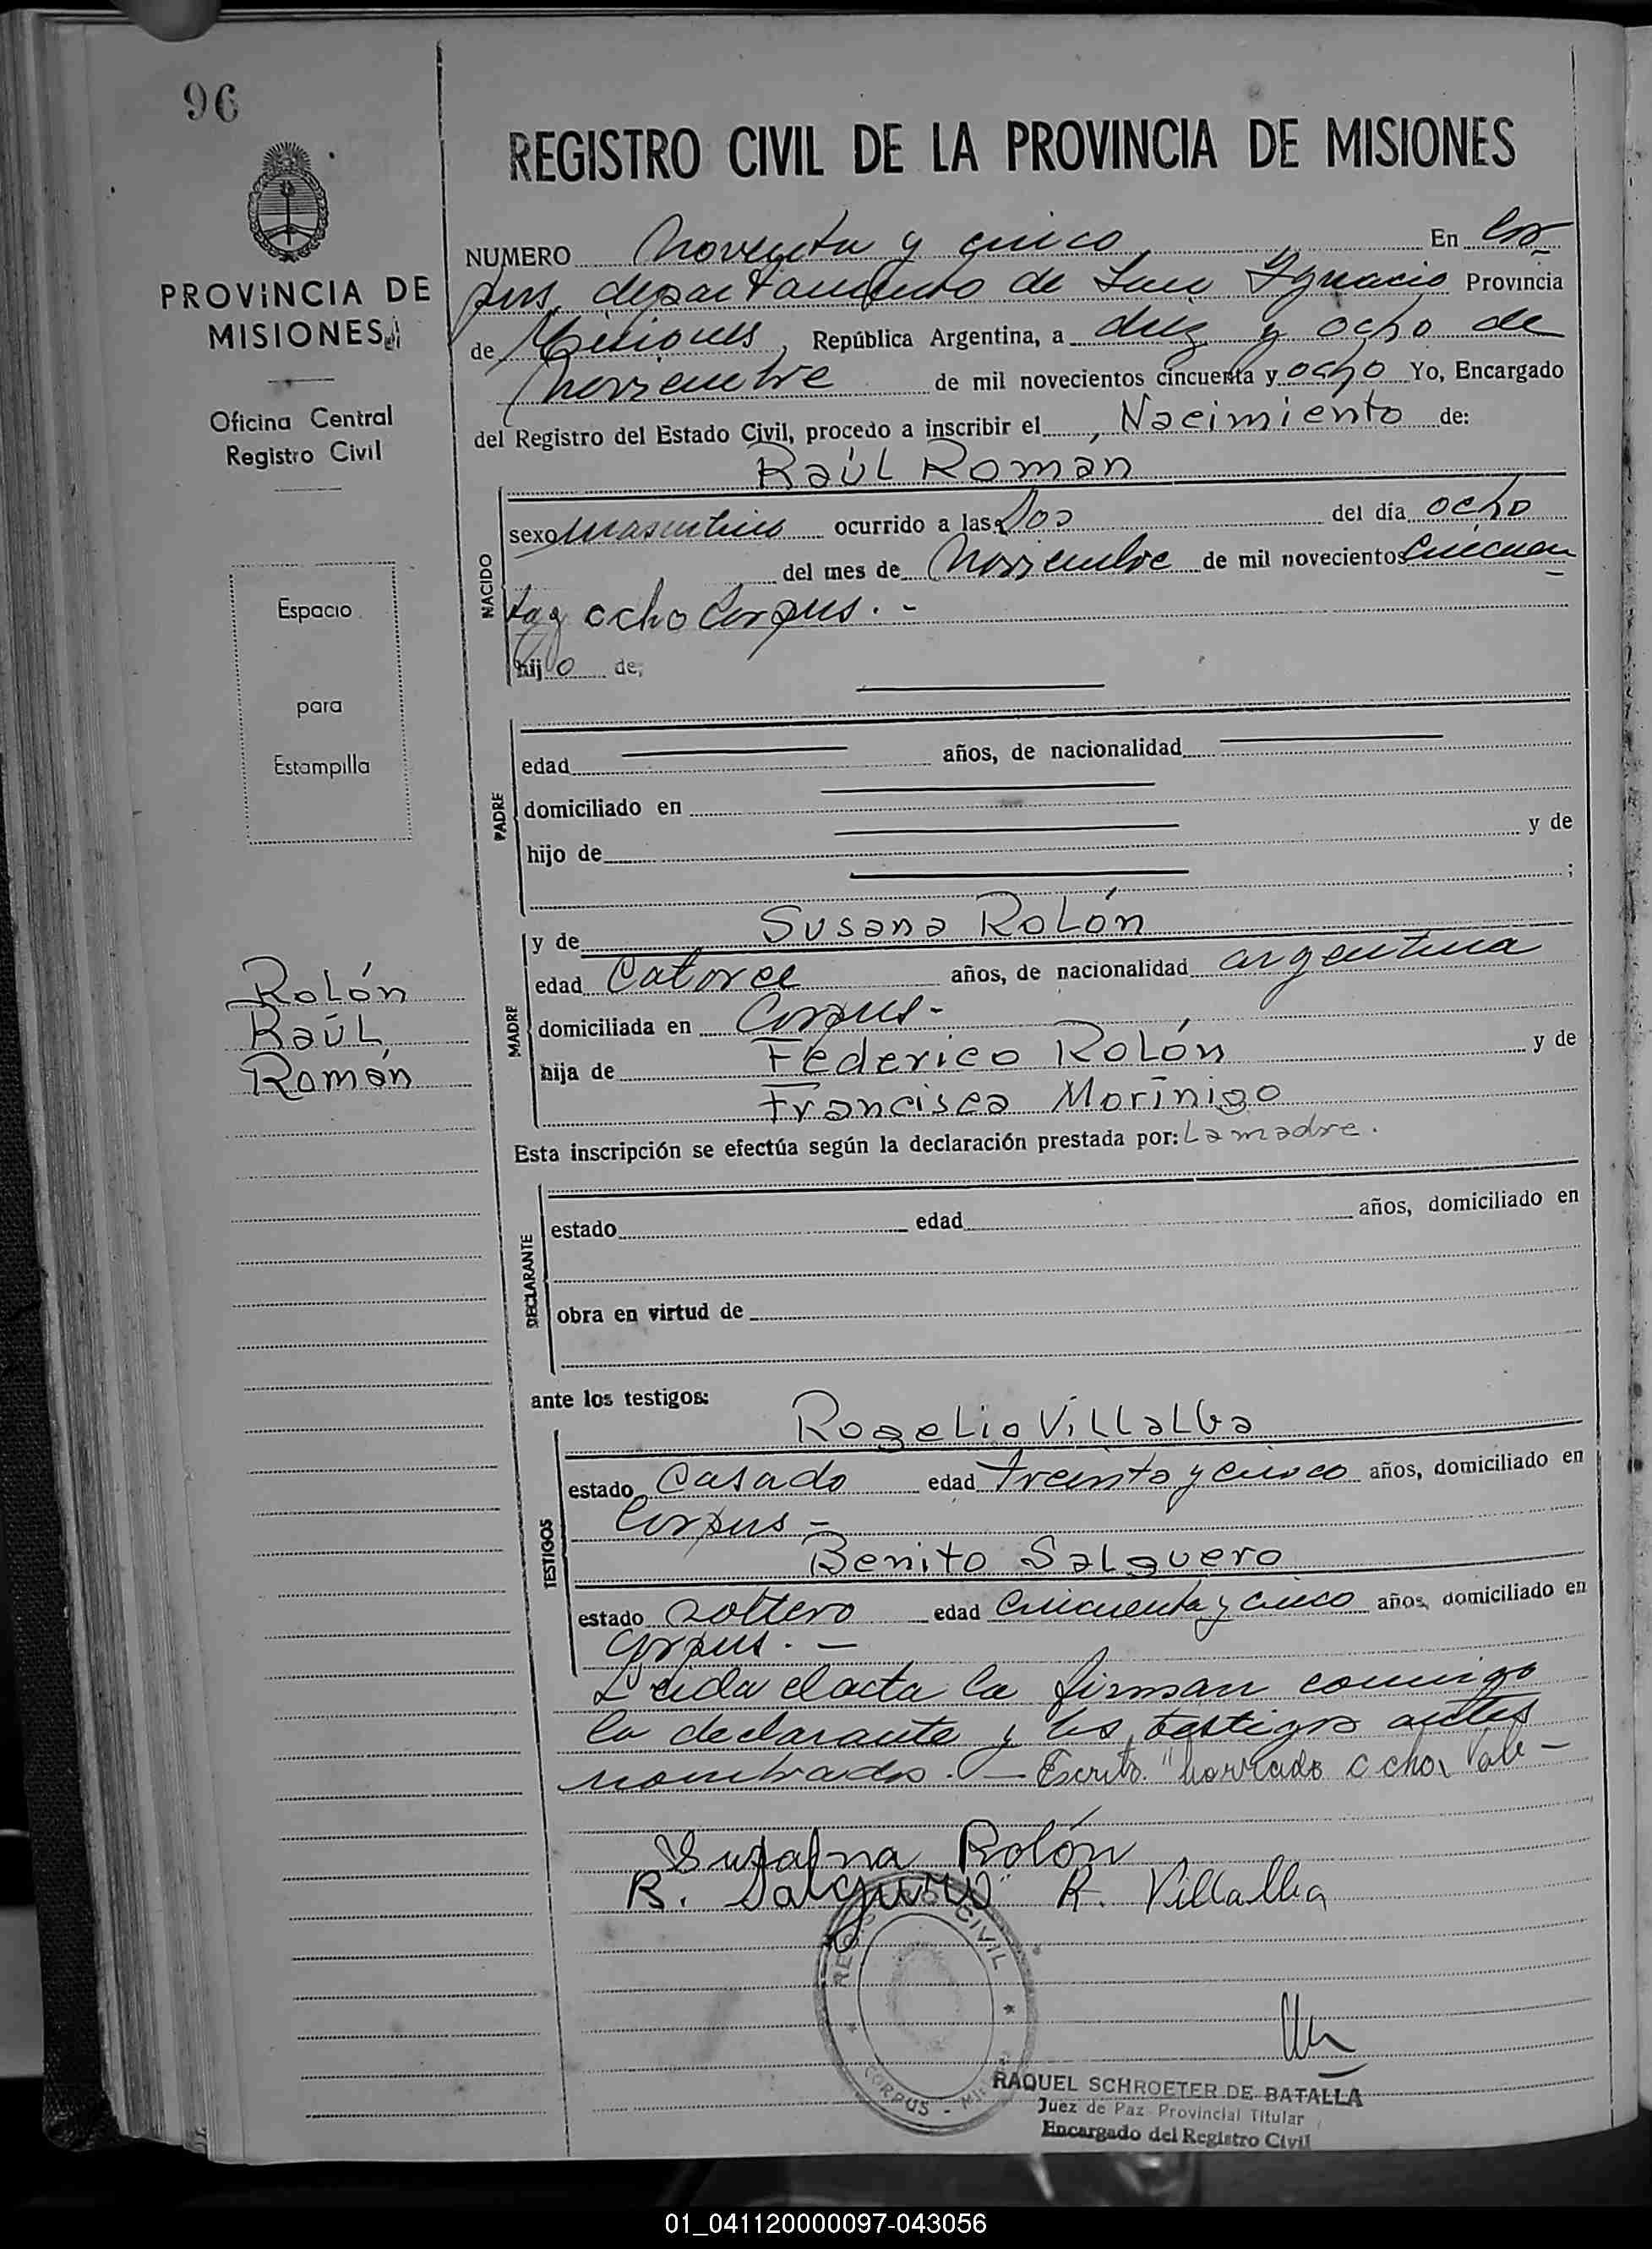 96
REGISTRO CIVIL DE LA PROVINCIA DE MISIONES
PROVINCIA DE
MISIONES
Oficina Central
Registro Civil
Espacio
para
Estampilla
Rolón
Raúl
Román
NUMERO Noventa y cinco En Cor
pus, departamento de San Ygnacio Provincia
de Misiones, República Argentina, a diez y ocho de
Noviembre de mil novecientos cincuenta y ocho Yo, Encargado
del Registro del Estado Civil, procedo a inscribir el Nacimiento de:
Raúl Roman
NACIDO
sexo masculino ocurrido a las Dos del día ocho
del mes de Noviembre de mil novecientos Cincuen
ta y ocho Corpus. -
hijo de,
PADRE
edad años, de nacionalidad
domiciliado en
hijo de y de
;
MADRE
y de Susana Rolón
edad Catorce años, de nacionalidad argentina
domiciliada en Corpus-
hija de Federico Rolón y de
Francisca Morínigo
Esta inscripción se efectúa según la declaración prestada por: La madre.
DECLARANTE
estado edad años, domiciliado en
obra en virtud de
ante los testigos:
TESTIGOS
Rogelio Villalba
estado Casado edad treinta y cinco años, domiciliado en
Corpus -
Benito Salguero
estado soltero edad Cincuenta y cinco años, domiciliado en
Corpus. -
Leida el acta la firman conmigo
la declarante y los testigos antes
nombrados. - Escrito "borrado ocho, vale -
Susana Rolón
B. Salguero R. Villalba
CIVIL
CORPUS -
RAQUEL SCHROETER DE BATALLA
Juez de Paz Provincial Titular
Encargado del Registro Civil
01_041120000097-043056